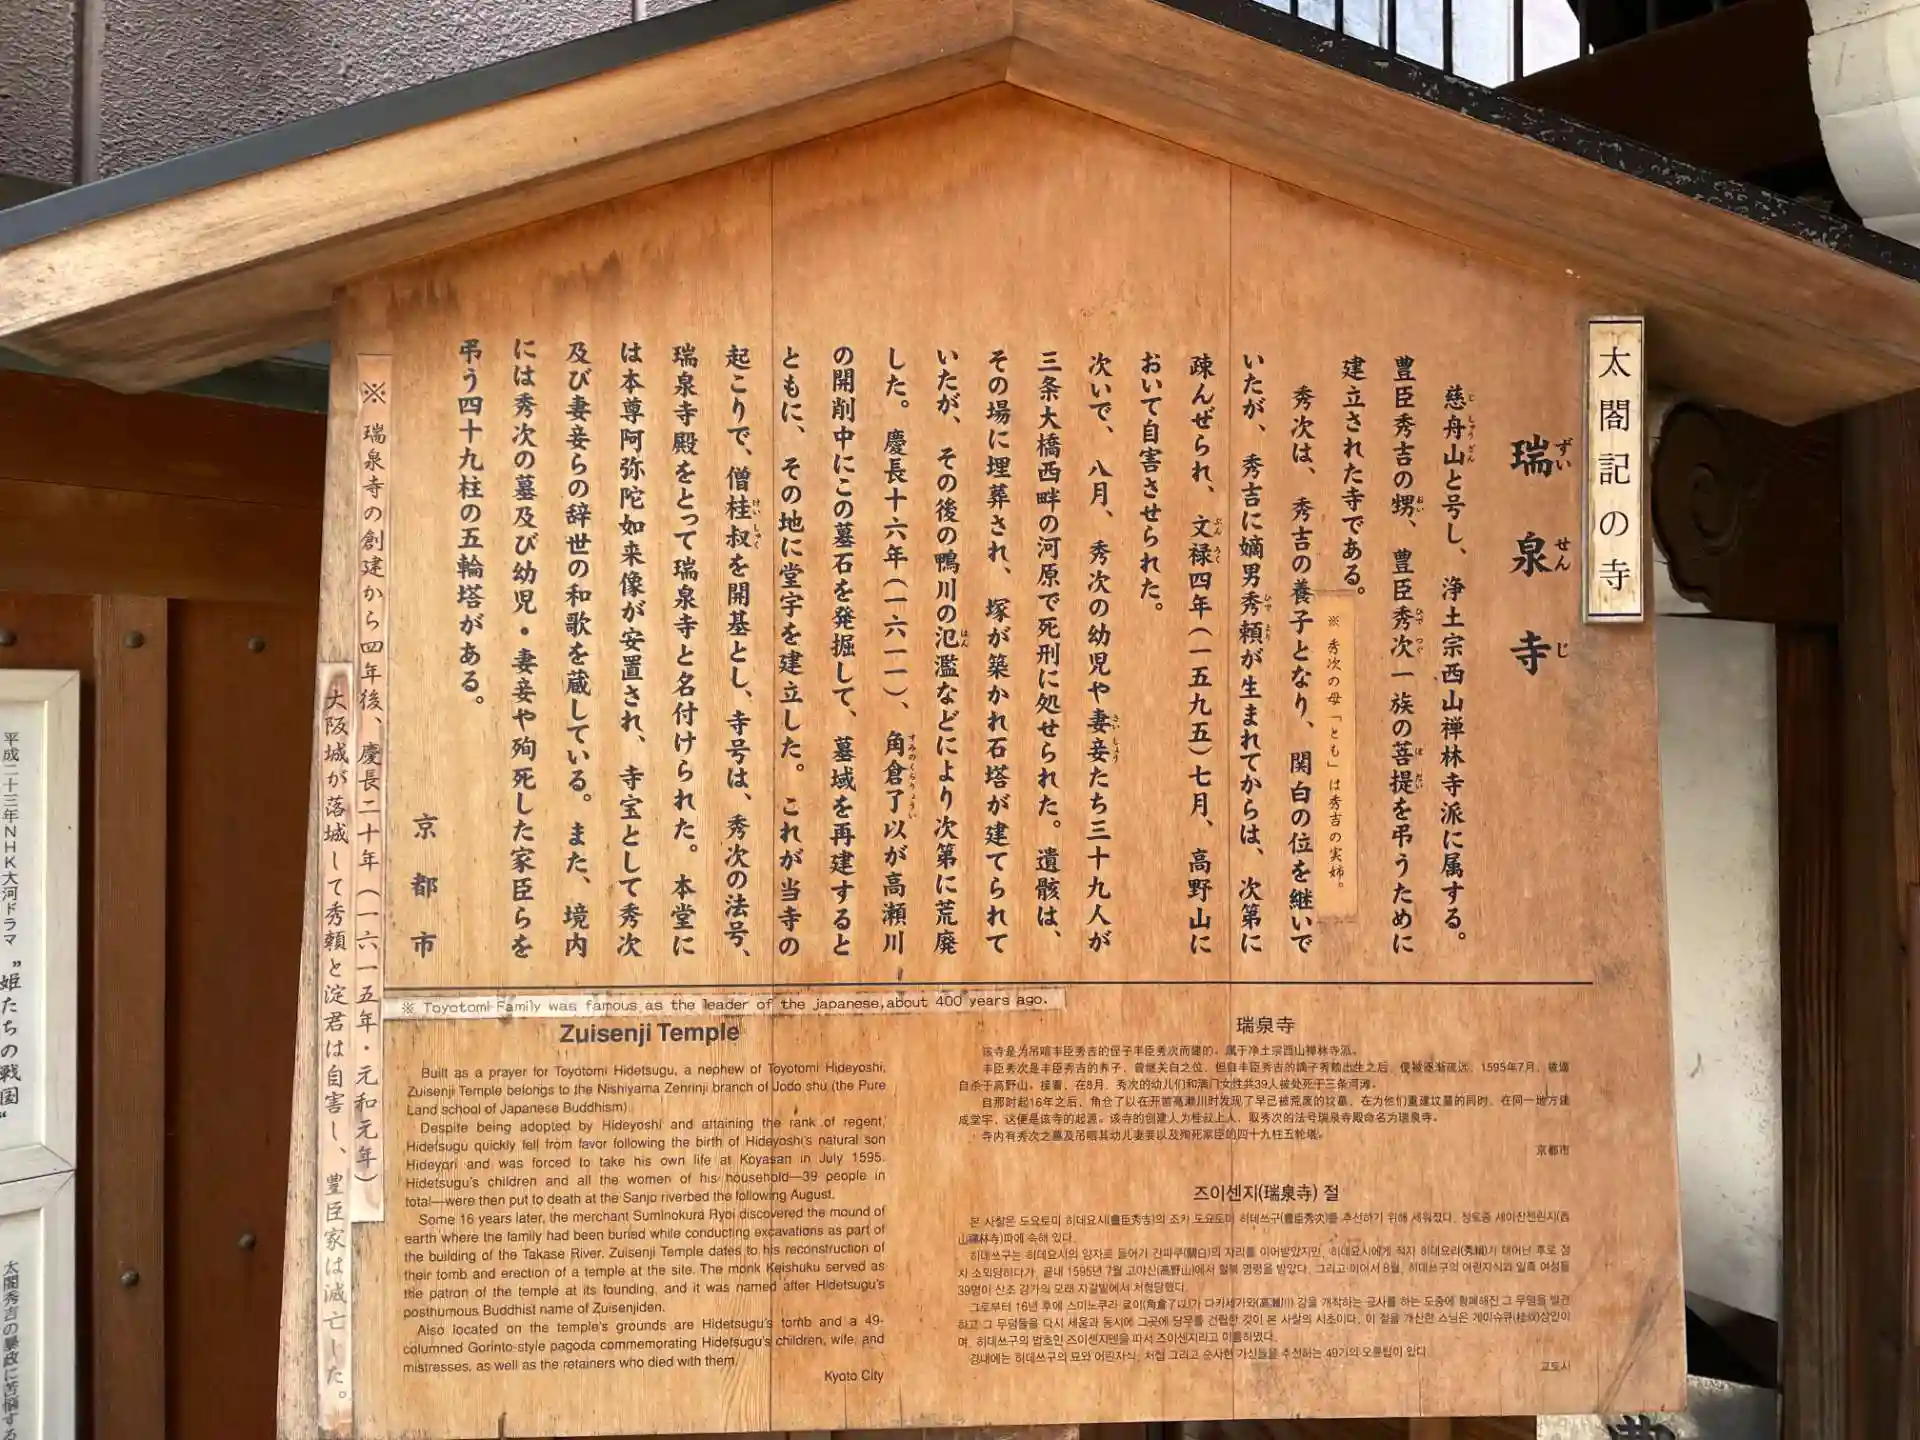 太閤記の寺
瑞泉寺
ずいせんじ
慈舟山と号し、浄土宗西山禅林寺派に属する。
豊臣秀吉の甥、豊臣秀次一族の菩提を弔うために
建立された寺である。
※ 秀次の母「とも」は秀吉の実姉。
秀次は、秀吉の養子となり、関白の位を継いで
いたが、秀吉に嫡男秀頼が生まれてからは、次第に
疎んぜられ、文禄四年(一五九五)七月、高野山に
おいて自害させられた。
次いで、八月、秀次の幼児や妻妾たち三十九人が
三条大橋西畔の河原で死刑に処せられた。遺骸は、
その場に埋葬され、塚が築かれ石塔が建てられて
いたが、その後の鴨川の氾濫などにより次第に荒廃
した。慶長十六年(一六一一)、角倉了以が高瀬川
の開削中にこの墓石を発掘して、墓域を再建すると
ともに、その地に堂宇を建立した。これが当寺の
起こりで、僧桂叔を開基とし、寺号は、秀次の法号、
瑞泉寺殿をとって瑞泉寺と名付けられた。本堂に
は本尊阿弥陀如来像が安置され、寺宝として秀次
及び妻妾らの辞世の和歌を蔵している。また、境内
には秀次の墓及び幼児・妻妾や殉死した家臣らを
弔う四十九柱の五輪塔がある。
京都市
※ 瑞泉寺の創建から四年後、慶長二十年(一六一五年・元和元年)
大阪城が落城して秀頼と淀君は自害し、豊臣家は滅亡した。
※ Toyotomi Family was famous as the leader of the japanese,about 400 years ago.
Zuisenji Temple
Built as a prayer for Toyotomi Hidetsugu, a nephew of Toyotomi Hideyoshi,
Zuisenji Temple belongs to the Nishiyama Zenrinji branch of Jodo shu (the Pure
Land school of Japanese Buddhism).
Despite being adopted by Hideyoshi and attaining the rank of regent,
Hidetsugu quickly fell from favor following the birth of Hideyoshi's natural son
Hideyori and was forced to take his own life at Koyasan in July 1595.
Hidetsugu's children and all the women of his household—39 people in
total—were then put to death at the Sanjo riverbed the following August.
Some 16 years later, the merchant Suminokura Ryoi discovered the mound of
earth where the family had been buried while conducting excavations as part of
the building of the Takase River. Zuisenji Temple dates to his reconstruction of
their tomb and erection of a temple at the site. The monk Keishuku served as
the patron of the temple at its founding, and it was named after Hidetsugu's
posthumous Buddhist name of Zuisenjiden.
Also located on the temple's grounds are Hidetsugu's tomb and a 49-
columned Gorinto-style pagoda commemorating Hidetsugu's children, wife, and
mistresses, as well as the retainers who died with them.
Kyoto City
瑞泉寺
该寺是为吊唁丰臣秀吉的侄子丰臣秀次而建的。属于净土宗西山禅林寺派。
丰臣秀次是丰臣秀吉的养子，曾继关白之位，但自丰臣秀吉的嫡子秀赖出生之后，便被逐渐疏远，1595年7月，被逼
自杀于高野山。接着，在8月，秀次的幼儿们和满门女性共39人被处死于三条河滩。
自那时起16年之后，角仓了以在开凿高濑川时发现了早已被荒废的坟墓，在为他们重建坟墓的同时，在同一地方建
成堂宇，这便是该寺的起源。该寺的创建人为桂叔上人，取秀次的法号瑞泉寺殿命名为瑞泉寺。
寺内有秀次之墓及吊唁其幼儿妻妾以及殉死家臣的四十九柱五轮塔。
京都市
즈이센지(瑞泉寺) 절
본 사찰은 도요토미 히데요시(豊臣秀吉)의 조카 도요토미 히데쓰구(豊臣秀次)를 추선하기 위해 세워졌다. 정토종 세이잔젠린지(西
山禪林寺)파에 속해 있다.
히데쓰구는 히데요시의 양자로 들어가 간파쿠(關白)의 자리를 이어받았지만, 히데요시에게 적자 히데요리(秀賴)가 태어난 후로 점
차 소외당하다가, 끝내 1595년 7월 고야산(高野山)에서 할복 명령을 받았다. 그리고 이어서 8월, 히데쓰구의 어린자식와 일족 여성들
39명이 산조 강가의 모래 자갈밭에서 처형당했다.
그로부터 16년 후에 스미노쿠라 료이(角倉了以)가 다카세가와(高瀨川) 강을 개착하는 공사를 하는 도중에 황폐해진 그 무덤을 발견
하고 그 무덤들을 다시 세움과 동시에 그곳에 당우를 건립한 것이 본 사찰의 시초이다. 이 절을 개산한 스님은 게이슈큐(桂叔)상인이
며, 히데쓰구의 법호인 즈이센지덴을 따서 즈이센지라고 이름하였다.
경내에는 히데쓰구의 묘와 어린자식, 처첩 그리고 순사한 가신들을 추선하는 49기의 오륜탑이 있다.
교토시
平成二十三年NHK大河ドラマ "姫たちの戦国"
太閤秀吉の暴政に苦悩する